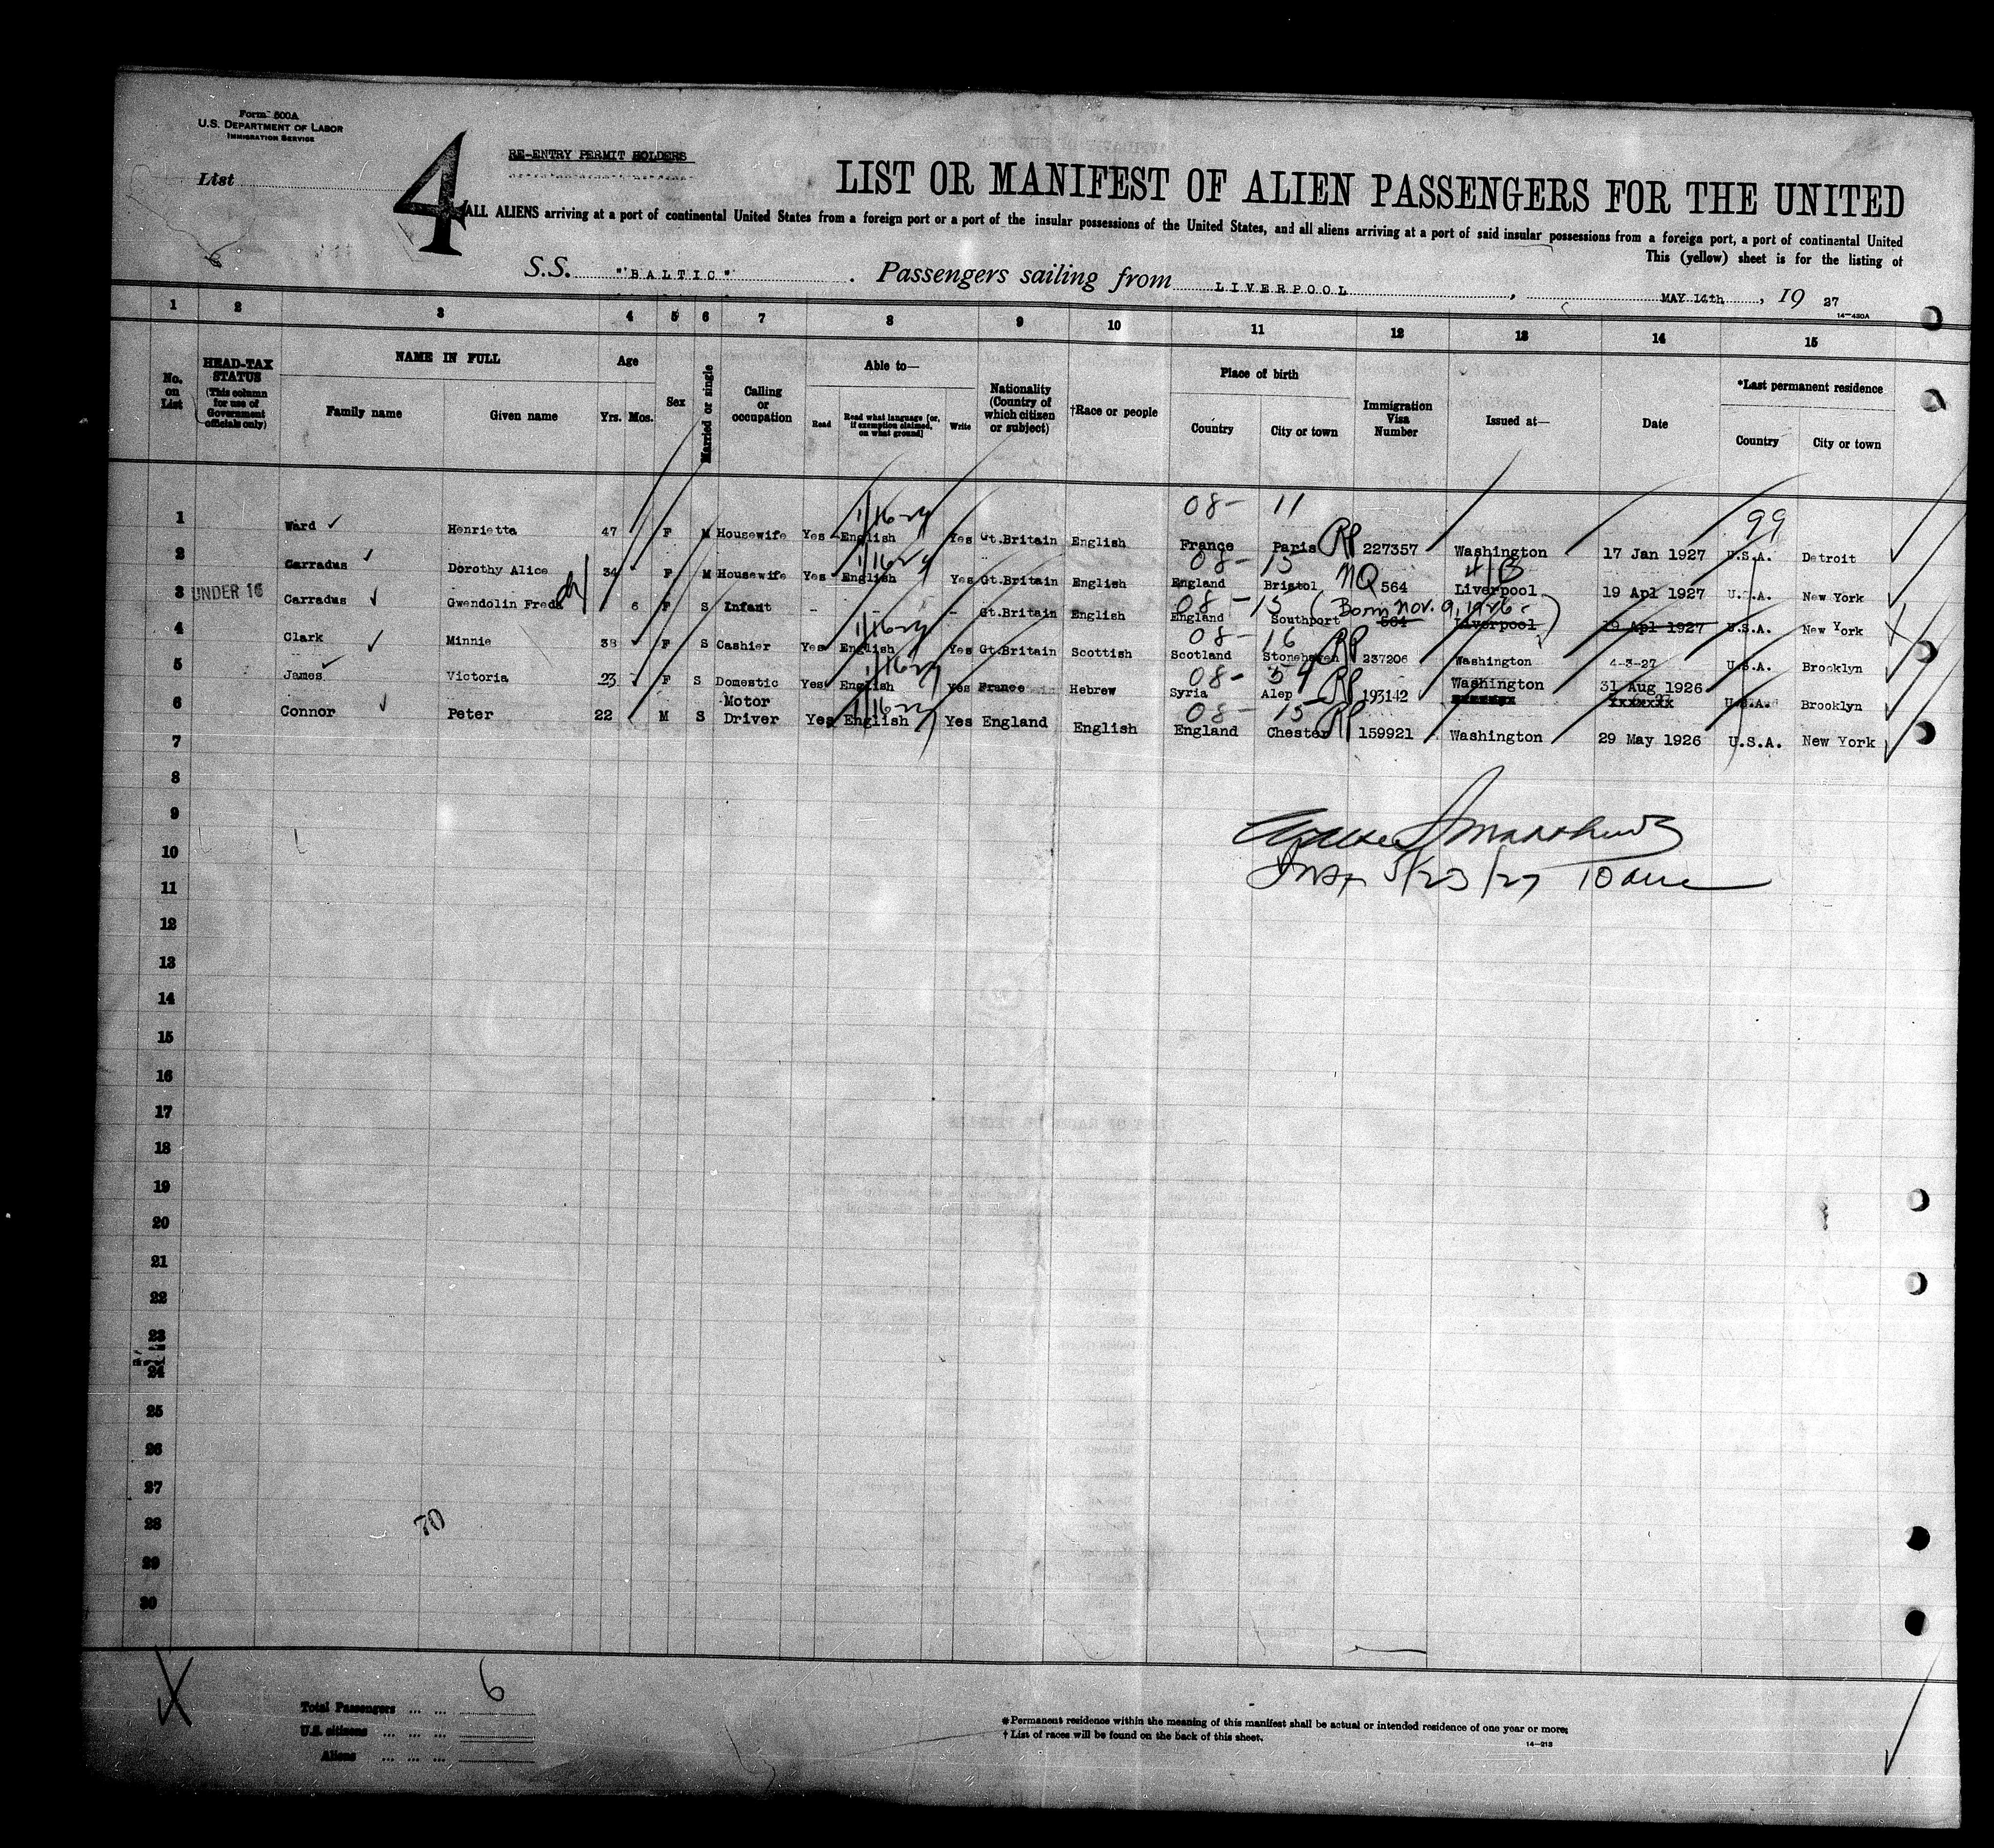 Form 500A
U.S. DEPARTMENT OF LABOR
IMMIGRATION SERVICE
List
4
RE-ENTRY PERMIT HOLDERS
LIST OR MANIFEST OF ALIEN PASSENGERS FOR THE UNITED
ALL ALIENS arriving at a port of continental United States from a foreign port or a port of the insular possessions of the United States, and all aliens arriving at a port of said insular possessions from a foreign port, a port of continental United
This (yellow) sheet is for the listing of
S.S. "BALTIC" . Passengers sailing from LIVERPOOL , MAY 14th , 19 27
14-430A
1 2 3 4 5 6 7 8 9 10 11 12 13 14 15
No. on List
HEAD-TAX STATUS (This column for use of Government officials only)
NAME IN FULL
Family name Given name
Age
Yrs. Mos.
Sex
Married or single
Calling or occupation
Able to—
Read Read what language [or, if exemption claimed, on what ground] Write
Nationality (Country of which citizen or subject)
†Race or people
Place of birth
Country City or town
Immigration Visa Number
Issued at—
Date
*Last permanent residence
Country City or town
08- 11 99
1 Ward Henrietta 47 F M Housewife Yes English Yes Gt.Britain English France Paris RP 227357 Washington 17 Jan 1927 U.S.A. Detroit
08- 15
2 Carradus Dorothy Alice 34 F M Housewife Yes English Yes Gt.Britain English England Bristol NQ 564 Liverpool 19 Apl 1927 U.S.A. New York
08-15 (Born Nov. 9, 1926-)
3 UNDER 16 Carradus Gwendolin Freda 6 F S Infant - - - Gt.Britain English England Southport 564 Liverpool 19 Apl 1927 U.S.A. New York
08- 16
4 Clark Minnie 38 F S Cashier Yes English Yes Gt.Britain Scottish Scotland Stonehaven RP 237206 Washington 4-3-27 U.S.A. Brooklyn
08- 54
5 James Victoria 23 F S Domestic Yes English Yes France Hebrew Syria Alep RP 193142 Washington 31 Aug 1926 U.S.A. Brooklyn
08- 15
6 Connor Peter 22 M S Motor Driver Yes English Yes England English England Chester RP 159921 Washington 29 May 1926 U.S.A. New York
7
8
9
10
Insp 5/23/27 10 am
11
12
13
14
15
16
17
18
19
20
21
22
23
24
25
26
27
28
70
29
30
Total Passengers ... ... 6
U.S. citizens ... ... ...
Aliens ... ... ...
*Permanent residence within the meaning of this manifest shall be actual or intended residence of one year or more.
†List of races will be found on the back of this sheet.
14-213